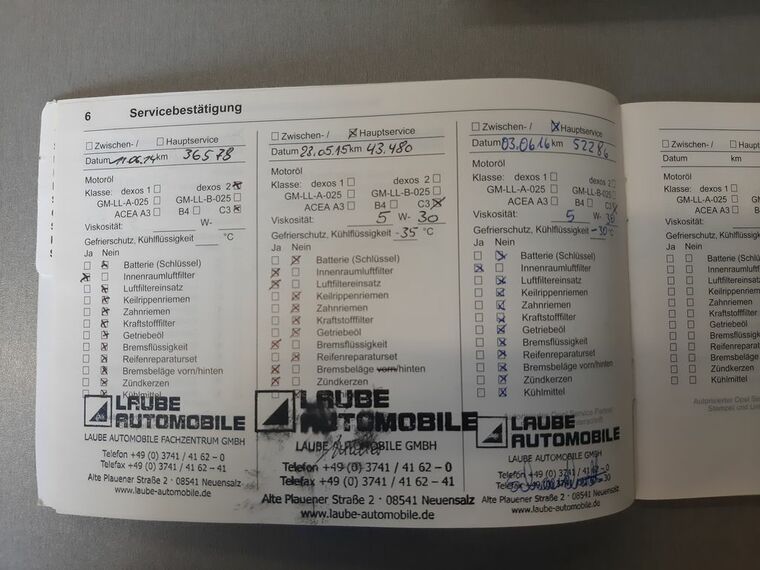 6 Servicebestätigung
☐ Zwischen- / ☐ Hauptservice
Datum 11.06.14 km 36578
Motoröl
Klasse: dexos 1 ☐ dexos 2 ☒
GM-LL-A-025 ☐ GM-LL-B-025 ☐
ACEA A3 ☐ B4 ☐ C3 ☒
Viskosität: W-
Gefrierschutz, Kühlflüssigkeit °C
Ja Nein
☐ ☒ Batterie (Schlüssel)
☒ ☐ Innenraumluftfilter
☐ ☒ Luftfiltereinsatz
☐ ☒ Keilrippenriemen
☐ ☒ Zahnriemen
☐ ☒ Kraftstofffilter
☐ ☒ Getriebeöl
☐ ☒ Bremsflüssigkeit
☐ ☒ Reifenreparaturset
☐ ☒ Bremsbeläge vorn/hinten
☐ ☒ Zündkerzen
Kühlmittel
LAUBE
AUTOMOBILE
LAUBE AUTOMOBILE FACHZENTRUM GMBH
Telefon +49 (0) 3741 / 41 62 – 0
Telefax +49 (0) 3741 / 41 62 – 41
Alte Plauener Straße 2 · 08541 Neuensalz
www.laube-automobile.de
☐ Zwischen- / ☒ Hauptservice
Datum 28.05.15 km 43.480
Motoröl
Klasse: dexos 1 ☐ dexos 2 ☐
GM-LL-A-025 ☐ GM-LL-B-025 ☐
ACEA A3 ☐ B4 ☐ C3 ☒
Viskosität: 5 W- 30
Gefrierschutz, Kühlflüssigkeit -35 °C
Ja Nein
☐ ☒ Batterie (Schlüssel)
☒ ☐ Innenraumluftfilter
☒ ☐ Luftfiltereinsatz
☐ ☒ Keilrippenriemen
☐ ☒ Zahnriemen
☐ ☒ Kraftstofffilter
☐ ☒ Getriebeöl
☒ ☐ Bremsflüssigkeit
☐ ☒ Reifenreparaturset
☒ ☐ Bremsbeläge vorn/hinten
☒ ☐ Zündkerzen
LAUBE
AUTOMOBILE
LAUBE AUTOMOBILE GMBH
Telefon +49 (0) 3741 / 41 62 – 0
Telefax +49 (0) 3741 / 41 62 – 41
Alte Plauener Straße 2 · 08541 Neuensalz
www.laube-automobile.de
☐ Zwischen- / ☒ Hauptservice
Datum 03.06.16 km 52286
Motoröl
Klasse: dexos 1 ☐ dexos 2 ☐
GM-LL-A-025 ☐ GM-LL-B-025 ☐
ACEA A3 ☐ B4 ☐ C3 ☒
Viskosität: 5 W- 30
Gefrierschutz, Kühlflüssigkeit -30 °C
Ja Nein
☐ ☒ Batterie (Schlüssel)
☒ ☐ Innenraumluftfilter
☐ ☒ Luftfiltereinsatz
☐ ☒ Keilrippenriemen
☐ ☒ Zahnriemen
☐ ☒ Kraftstofffilter
☐ ☒ Getriebeöl
☐ ☒ Bremsflüssigkeit
☐ ☒ Reifenreparaturset
☐ ☒ Bremsbeläge vorn/hinten
☐ ☒ Zündkerzen
☐ ☒ Kühlmittel
LAUBE
AUTOMOBILE
LAUBE AUTOMOBILE GMBH
Telefon +49 (0) 3741 / 41 62 – 0
Alte Plauener Straße 2 · 08541 Neuensalz
www.laube-automobile.de
☐ Zwischen- / ☐ Haupt
Datum km
Motoröl
Klasse: dexos 1 ☐
GM-LL-A-025 ☐
ACEA A3 ☐
Viskosität:
Gefrierschutz, Kühlflüssig
Ja Nein
☐ ☐ Batterie (Schlüssel)
☐ ☐ Innenraumluftfilter
☐ ☐ Luftfiltereinsatz
☐ ☐ Keilrippenriemen
☐ ☐ Zahnriemen
☐ ☐ Kraftstofffilter
☐ ☐ Getriebeöl
☐ ☐ Bremsflüssigkeit
☐ ☐ Reifenreparaturset
☐ ☐ Bremsbeläge vorn
☐ ☐ Zündkerzen
☐ ☐ Kühlmittel
Autorisierter Opel Se
Stempel und Un